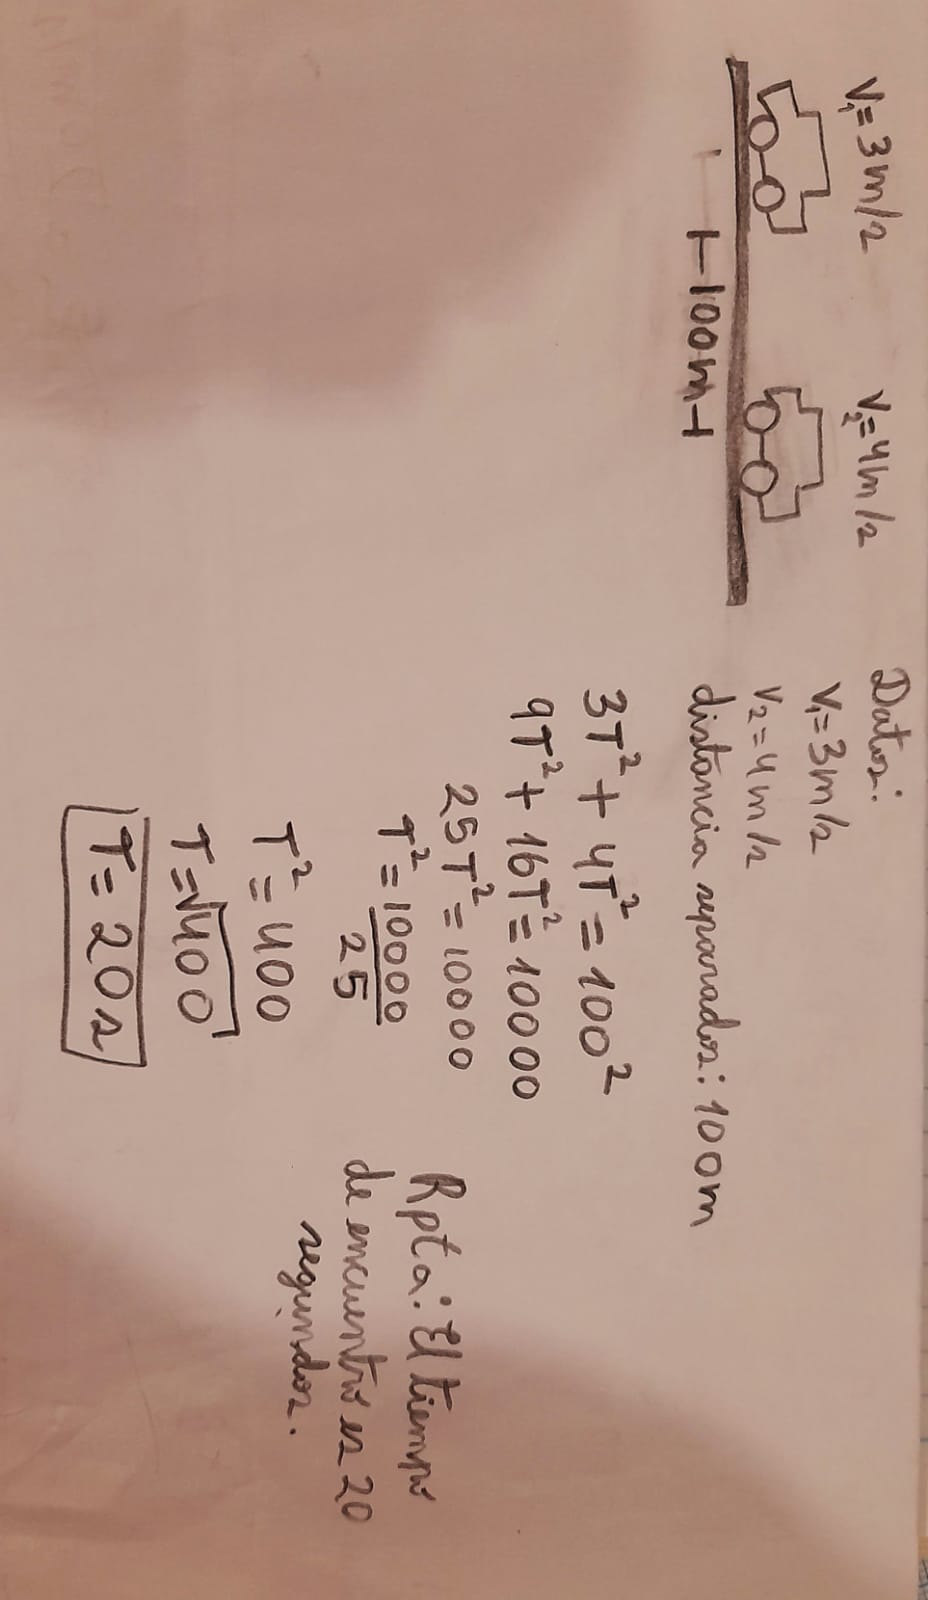 V₁=3m/s V₂=4m/s
⊢100m⊣
Datos:
V₁=3m/s
V₂=4m/s
distancia separados: 100m
3T² + 4T² = 100²
9T² + 16T² = 10000
25T² = 10000
T² = 10000/25
T² = 400
T=√400
T= 20s
Rpta: El tiempo
de encuentro es 20
segundos.